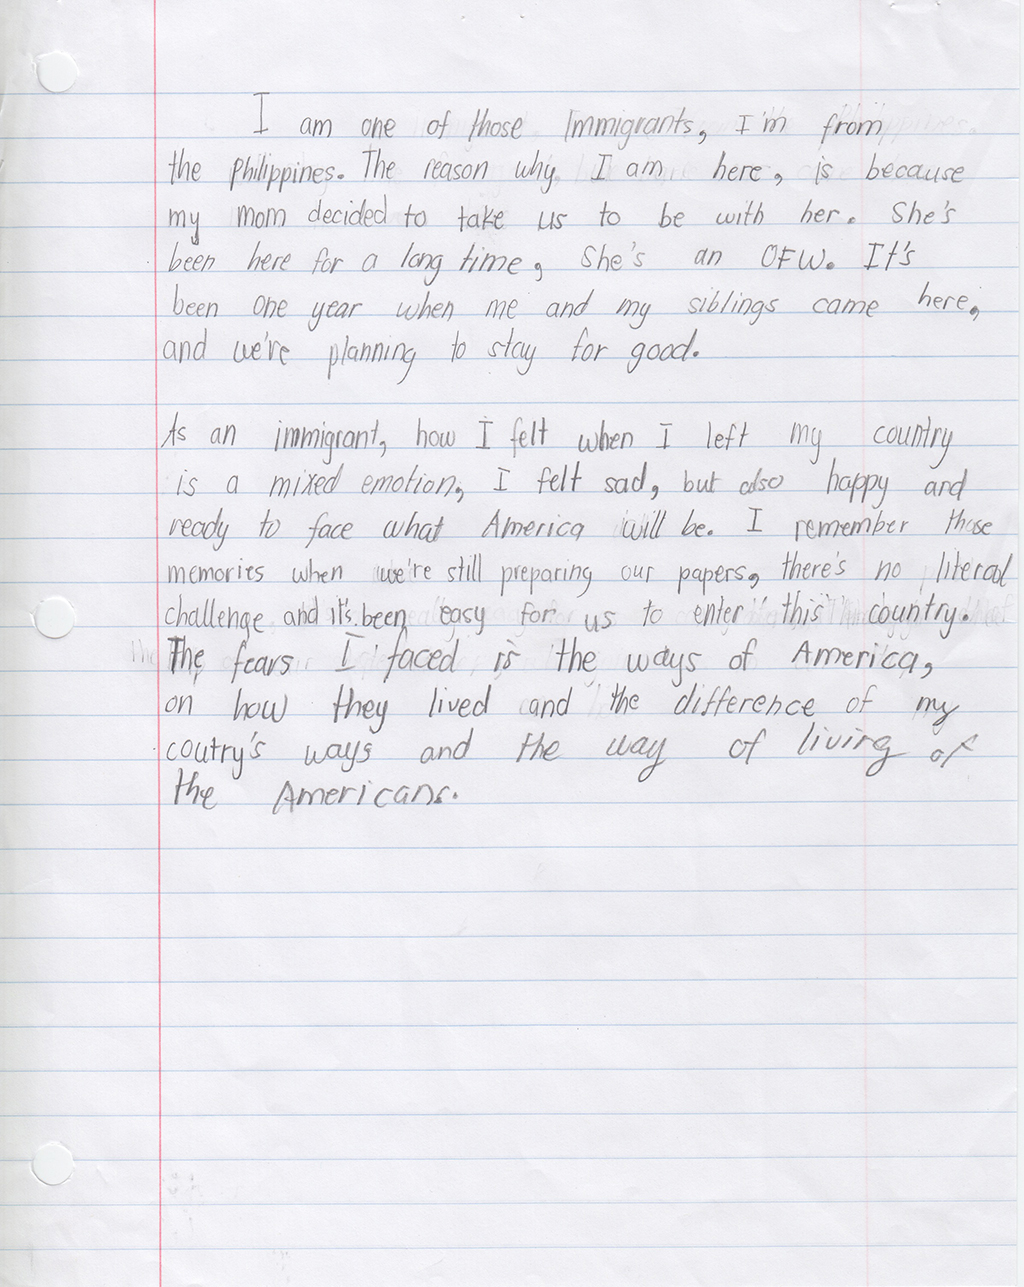 I am one of those Immigrants, I'm from
the Philippines. The reason why I am here, is because
my mom decided to take us to be with her. She's
been here for a long time, She's an OFW. It's
been one year when me and my siblings came here,
and we're planning to stay for good.
As an immigrant, how I felt when I left my country
is a mixed emotion, I felt sad, but also happy and
ready to face what America will be. I remember those
memories when we're still preparing our papers, there's no literal
challenge and it's been easy for us to enter this country.
The fears I faced is the ways of America,
on how they lived and the difference of my
coutry's ways and the way of living of
the Americans.